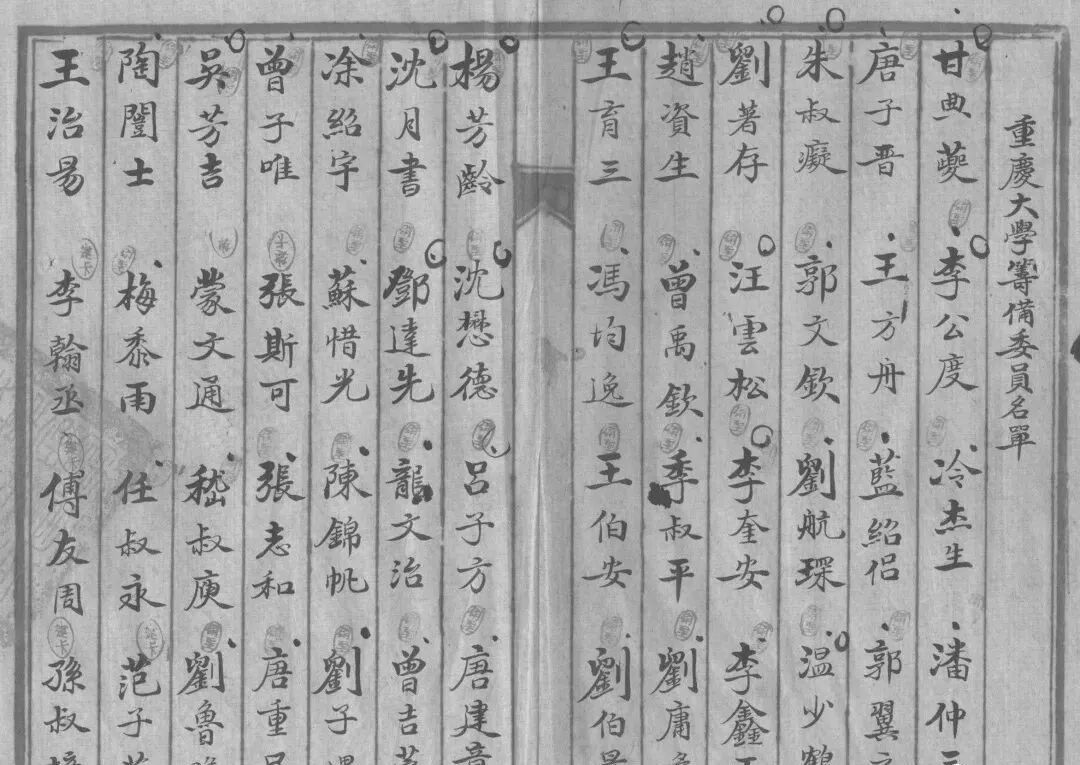 重慶大學籌備委員名單
甘典夔 李公度 冷杰生 潘仲三
唐子晋 王方舟 藍紹侣 郭翼之
朱叔癡 郭文欽 劉航琛 温少鶴
劉著存 汪雲松 李奎安 李鑫五
趙資生 曾禹欽 季叔平 劉庸
王育三 馮均逸 王伯安 劉伯
楊芳齡 沈懋德 吕子方 唐建章
沈月書 鄧達先 龍文治 曾吉芝
凃紹宇 蘇惜光 陳錦帆 劉子
曾子唯 張斯可 張志和 唐重
吳芳吉 蒙文通 嵇叔庚 劉魯
陶闓士 梅黍雨 任叔永 范子
王治易 李翰丞 傅友周 孫叔